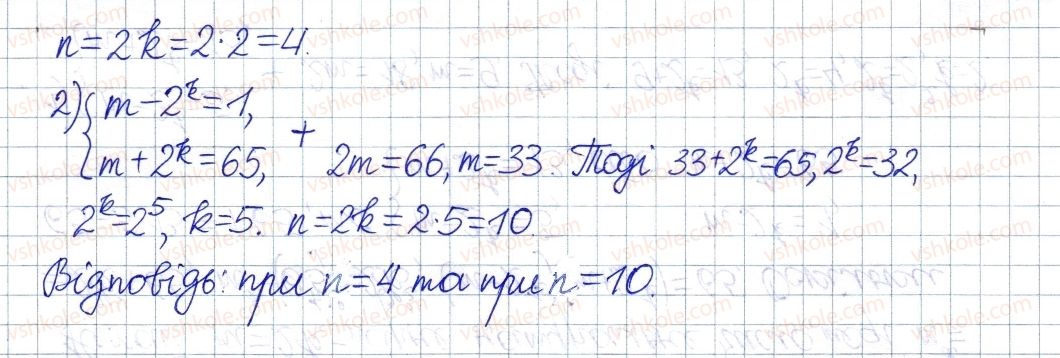 n=2k=2·2=4.
2) { m-2^k=1,
m+2^k=65, + 2m=66, m=33. Тоді 33+2^k=65, 2^k=32,
2^k=2^5, k=5. n=2k=2·5=10.
Відповідь: при n=4 та при n=10.